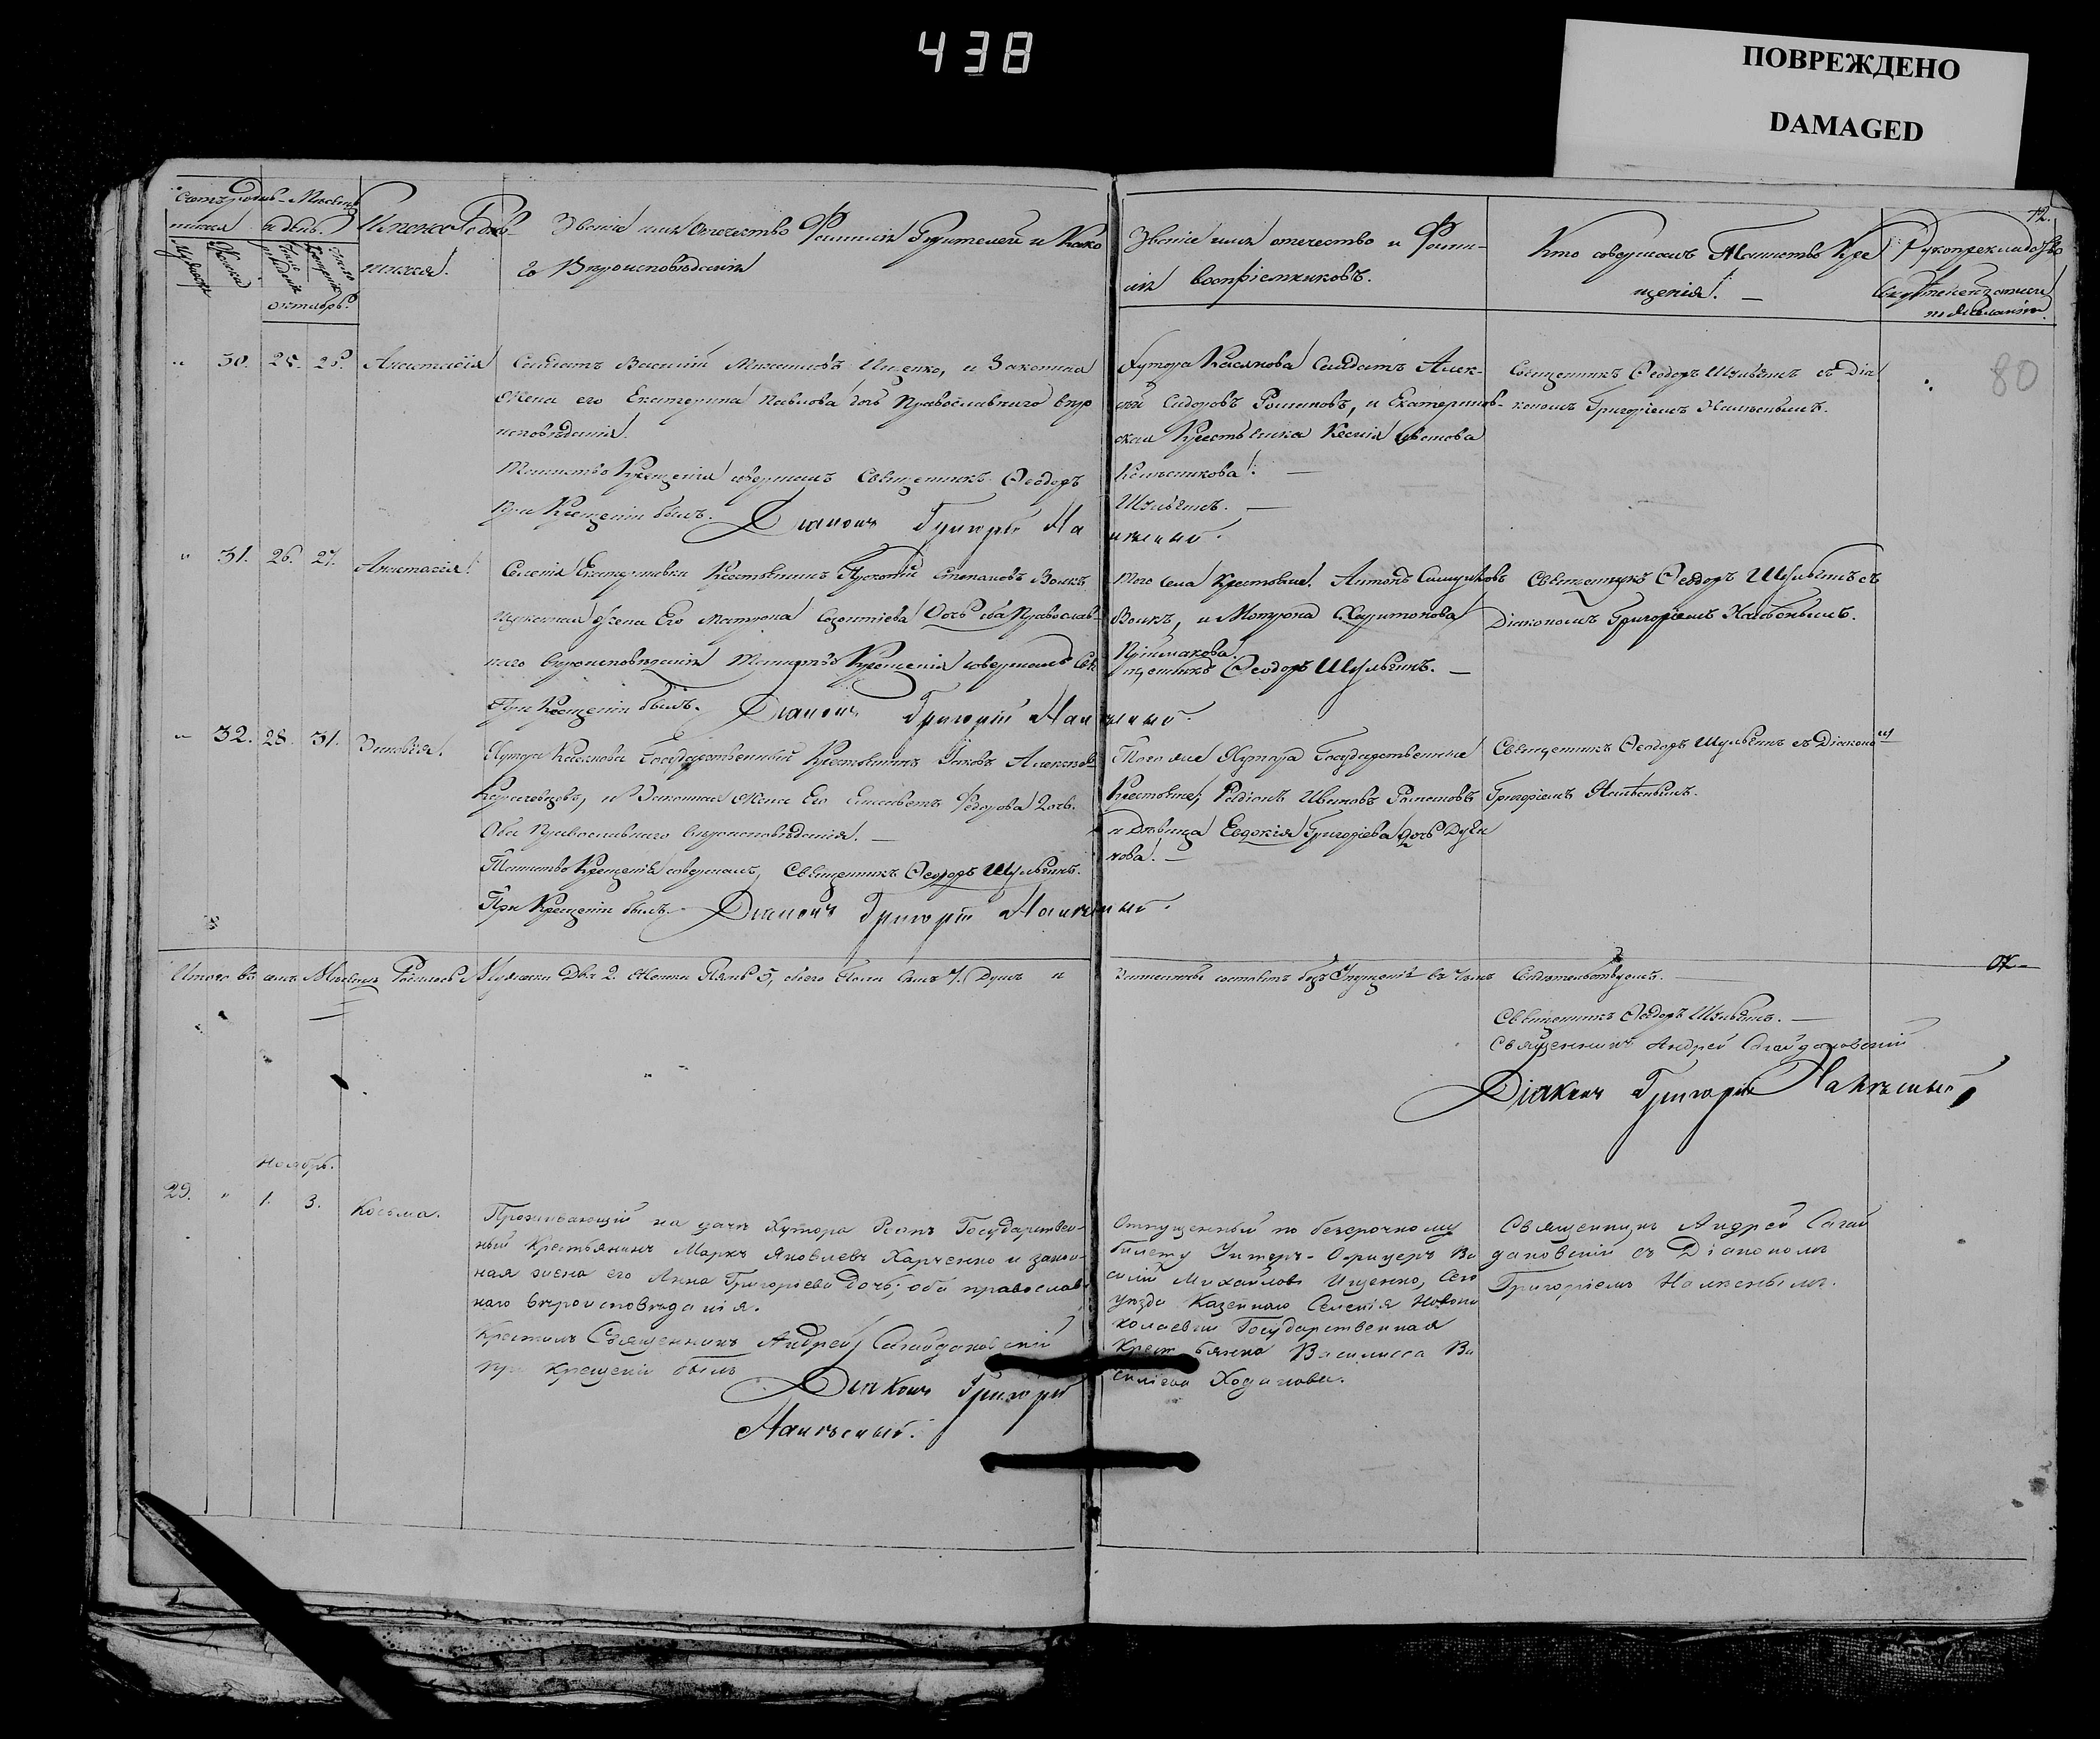 438
ПОВРЕЖДЕНО
DAMAGED
12.
80
Счетъ родив- Мѣсяцъ
шихся и день.
Имена Родив-
шихся.
Званіе имя отечество Фамилія Родителей и Како
го Вѣроисповѣданія
Званіе имя отечество и Фами-
лія воспріемниковъ.
Кто совершалъ Таинство Кре
щенія.
Рукоприкладство
по желанію.
октябрь
30. 25. 25. Анастасія
Солдатъ Василій Михаиловъ Ищенко, и Законная
Жена его Екатерина Павлова дочь Православнаго вѣро
исповѣданія.
Таинство Крещенія совершалъ Священникъ Ѳеодоръ
Шульгинъ.
При Крещеніи былъ. Діаконъ Григорій Налѣсный.
Хутора Касьянова Солдатъ Алек-
сѣй Сидоровъ Романовъ, и Екатеринов-
ская Крестьянка Ксенія Иванова
Колесникова.
Священникъ Ѳеодоръ Шульгинъ съ Діа
кономъ Григоріемъ Налѣснымъ.
31. 26. 27. Анастасія.
Селенія Екатериновки Крестьянинъ Прокопій Степановъ Волкъ
законная Жена Его Матрона Дочь оба Православ-
наго вѣроисповѣданія Таинство Крещенія совершалъ Свя-
щенникъ Ѳеодоръ Шульгинъ.
При Крещеніи былъ. Діаконъ Григорій Налѣсный.
Того села Крестьяне. Антонъ
Волкъ, и Мотрона Харитонова
Приймакова.
Священникъ Ѳеодоръ Шульгинъ съ
Діакономъ Григоріемъ Налѣснымъ.
32. 28. 31. Зиновія.
Хутора Касьянова Государственный Крестьянинъ Яковъ Алексѣевъ
и Законная Жена Его Елисаветъ Федорова дочь.
Оба Православнаго вѣроисповѣданія.
Таинство Крещенія совершалъ, Священникъ Ѳеодоръ Шульгинъ.
При Крещеніи былъ. Діаконъ Григорій Налѣсный.
Того же Хутора Государственные
Крестьяне, Родіонъ Ивановъ Романовъ
и Дѣвица Евдокія Григоріева дочь
Священникъ Ѳеодоръ Шульгинъ съ Діаконом
Григоріемъ Налѣснымъ.
Итого въ семъ Мѣсяцѣ Родилось Мужеска Два 2. Женска Пять 5, обоего Пола Семь 7. Душъ и
составлена безъ Опущенія въ чемъ Свидѣтельствуемъ.
Священникъ Ѳеодоръ Шульгинъ.
Священникъ Андрей Сагайдаковскій
Діаконъ Григорій Налѣсный
Ноябрь.
29. 1. 3. Косьма.
Проживающій на дачѣ Хутора Государствен-
ный Крестьянинъ Маркъ Яковлевъ Харченко и закон-
ная жена его Анна Григоріева дочь, оба православ-
наго вѣроисповѣданія.
Крестилъ Священникъ Андрей Сагайдаковскій
при крещеніи былъ
Діаконъ Григорій
Налѣсный.
Отпущенный по безсрочному
билету Унтеръ-Офицеръ Ва
силій Михайловъ Ищенко, Сего
уѣзда Казеннаго Селенія Новони
колаевки Государственная
Крестьянка Василисса Ва
силіева Ходакова.
Священникъ Андрей Сагай
даковскій съ Діакономъ
Григоріемъ Налѣснымъ.